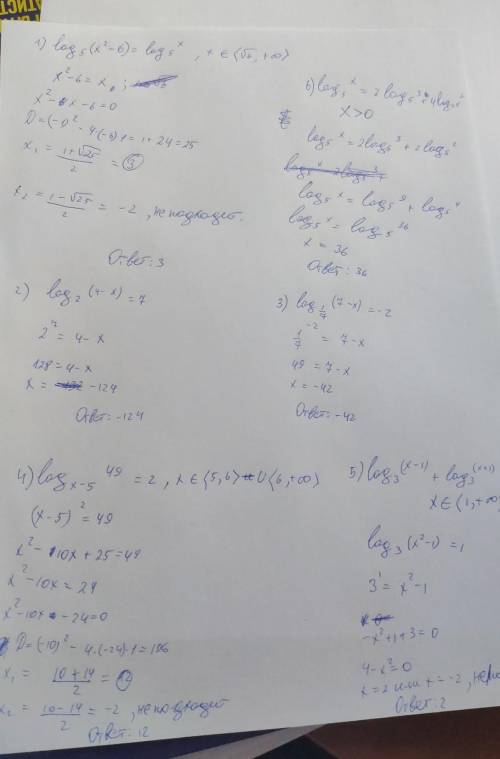 1) log₅(x²-6) = log₅ˣ , x ∈ (√6, +∞)
x²-6 = x ;
x² - x - 6 = 0
D = (-1)² - 4·(-6)·1 = 1 + 24 = 25
x₁ = (1+√25)/2 = 3
x₂ = (1-√25)/2 = -2 , не подходит.
Ответ: 3
6) log₅ˣ = 2 log₅³ + 4 log
x > 0
log₅ˣ = 2log₅³ + 2log₅²
log₅ˣ = log₅⁹ + log₅⁴
log₅ˣ = log₅³⁶
x = 36
Ответ: 36
2) log₂(4-x) = 7
2⁷ = 4 - x
128 = 4 - x
x = -124
Ответ: -124
3) log_{1/7}(7-x) = -2
1/7⁻² = 7 - x
49 = 7 - x
x = -42
Ответ: -42
4) log_{x-5} 49 = 2 , x ∈ (5, 6) ∪ (6, +∞)
(x-5)² = 49
x² - 10x + 25 = 49
x² - 10x = 24
x² - 10x - 24 = 0
D = (-10)² - 4·(-24)·1 = 196
x₁ = (10+14)/2 = 12
x₂ = (10-14)/2 = -2 , не подходит
Ответ: 12
5) log₃(x-1) + log₃(x+1)
x ∈ (1, +∞)
log₃(x²-1) = 1
3¹ = x² - 1
-x² + 1 + 3 = 0
4 - x² = 0
x = 2 или x = -2 ,
Ответ: 2